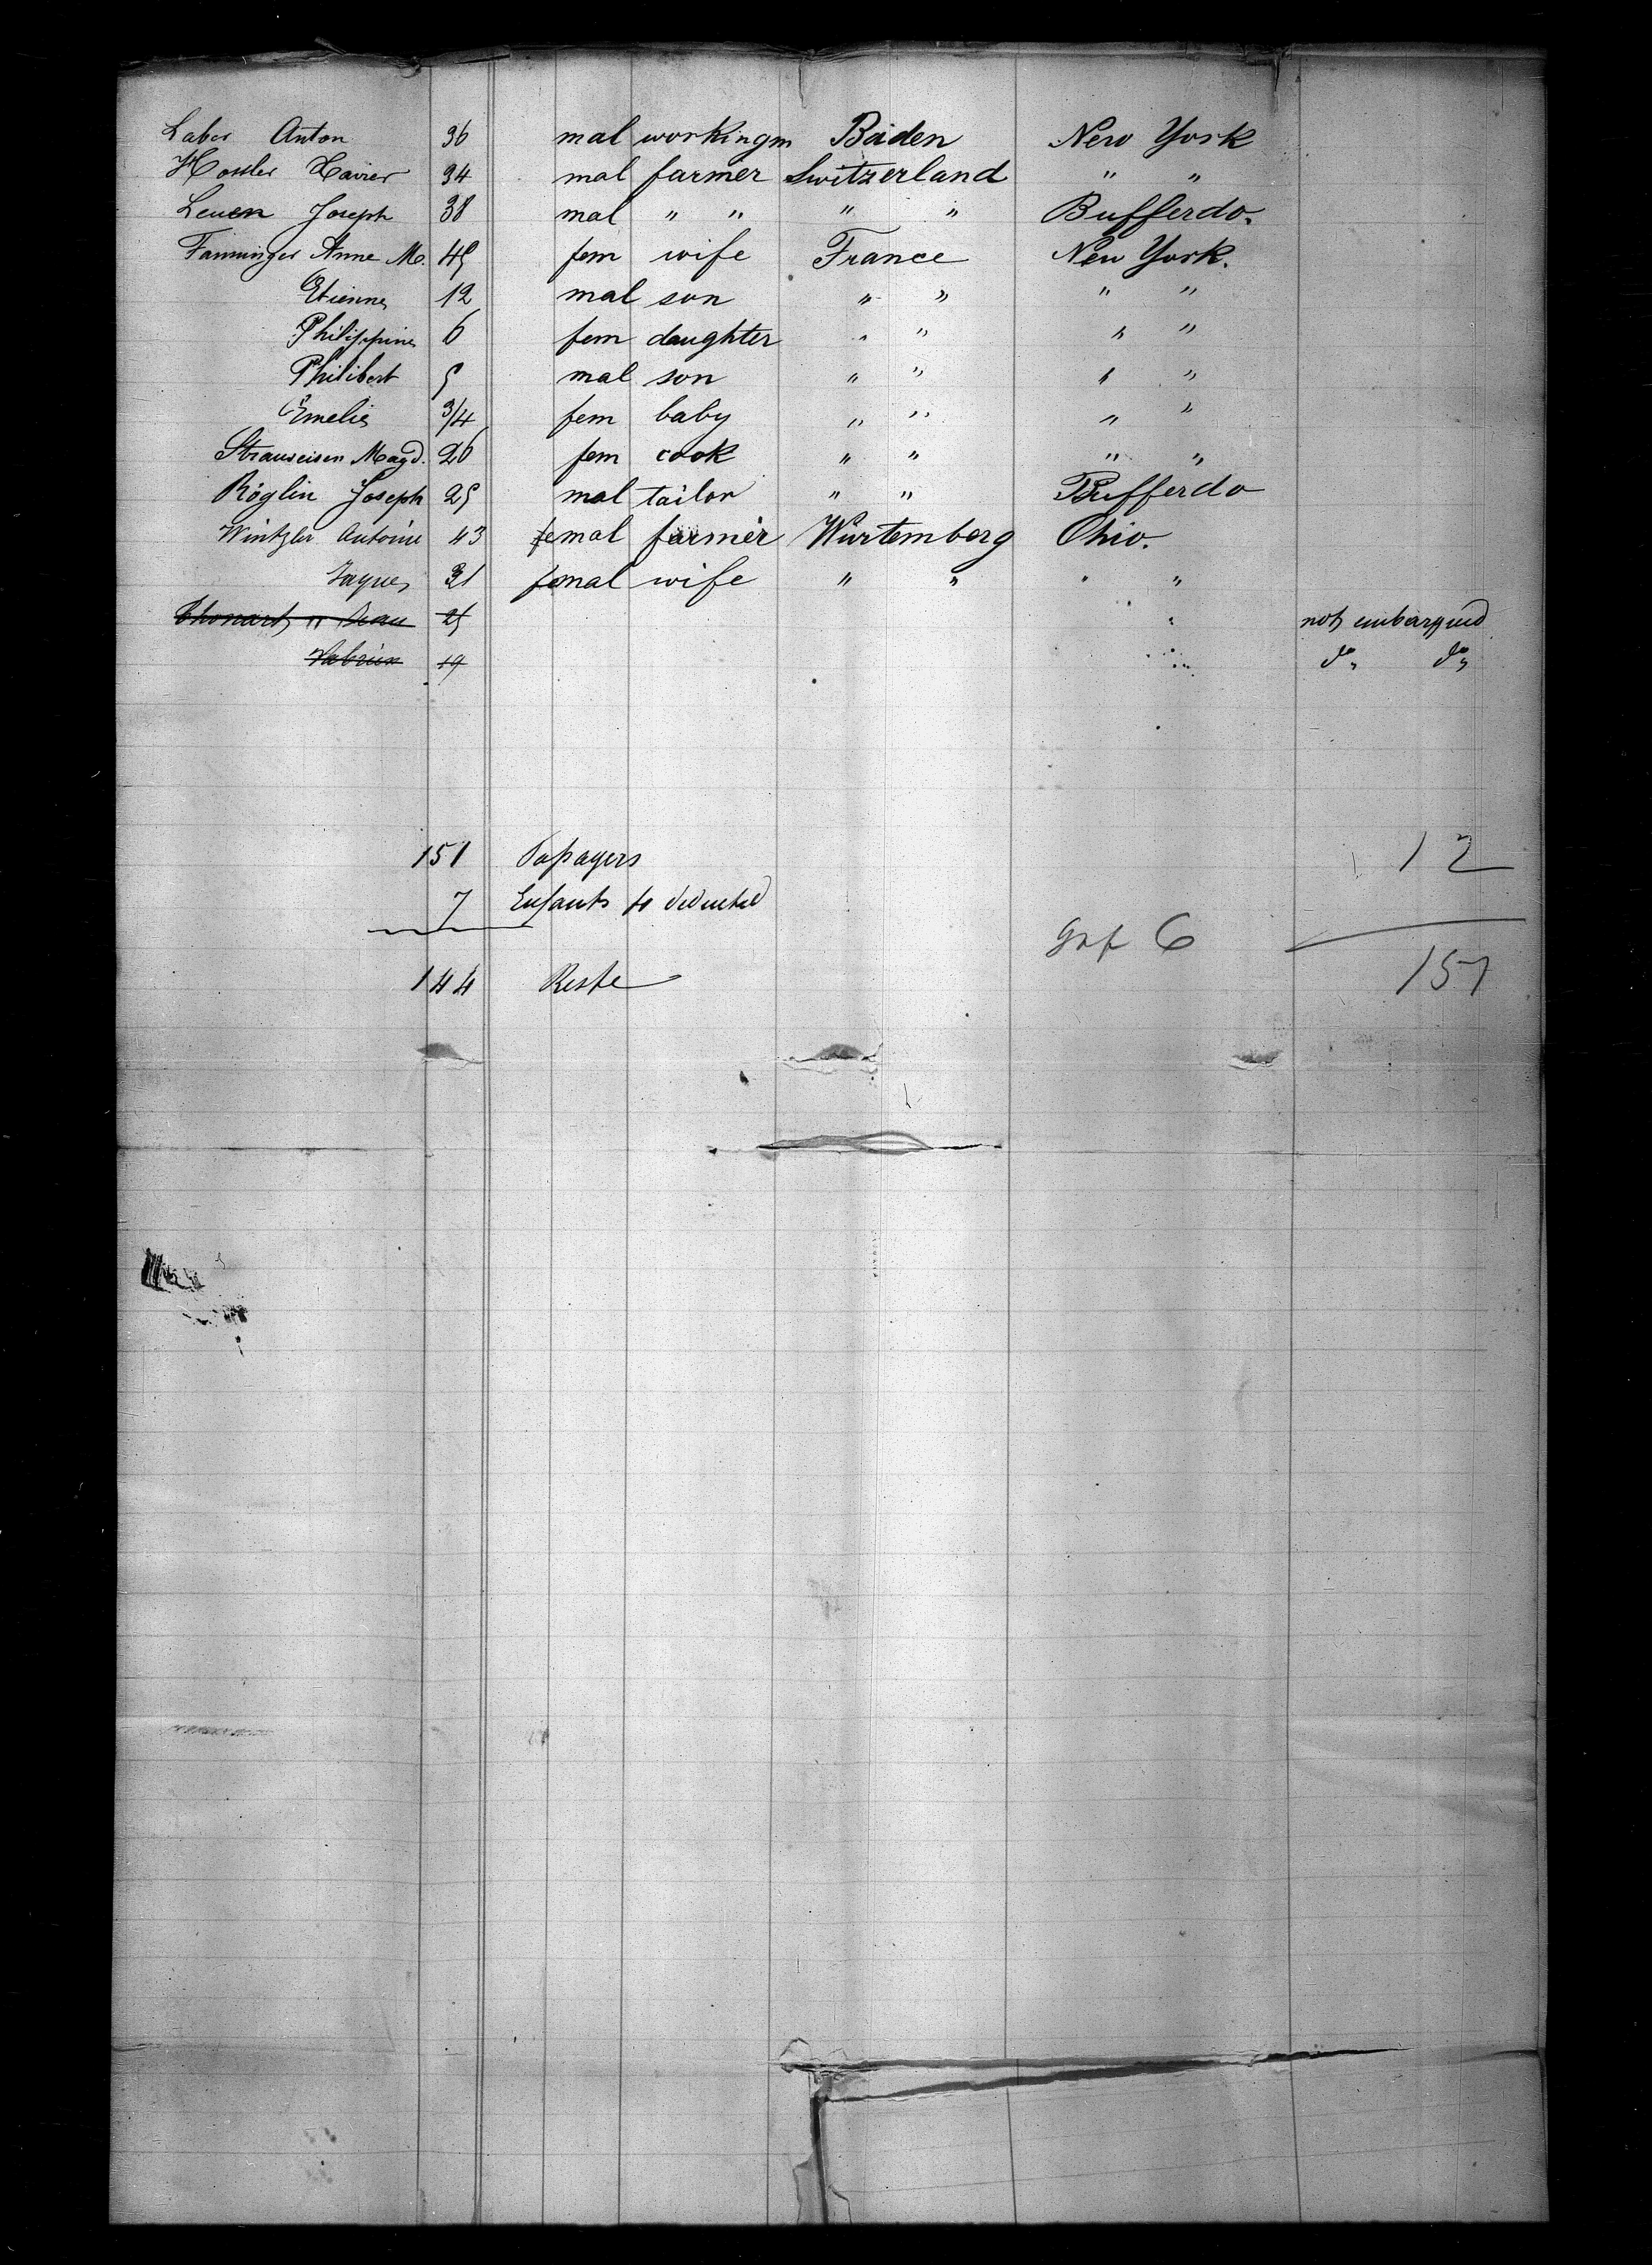 Laber Anton 36 mal workingm Baden New York
Hossler Xavier 34 mal farmer Switzerland " "
Leuen Joseph 38 mal " " " " Bufferdo.
Fanninger Anne M. 45 fem wife France New York.
Etienne 12 mal son " " " "
Philippine 6 fem daughter " " " "
Philibert 5 mal son " " " "
Emelie 3/4 fem baby " " " "
Strauseisen Magd. 26 fem cook " " " "
Röglin Joseph 25 mal tailor " " Bufferdo
Wintzler Antoine 43 femal farmer Würtemberg Ohio.
Jaques 31 femal wife " " " "
25 not embarqued
19 do do
151 Passagers 12
7 Enfants to deducted
6
144 Reste 151